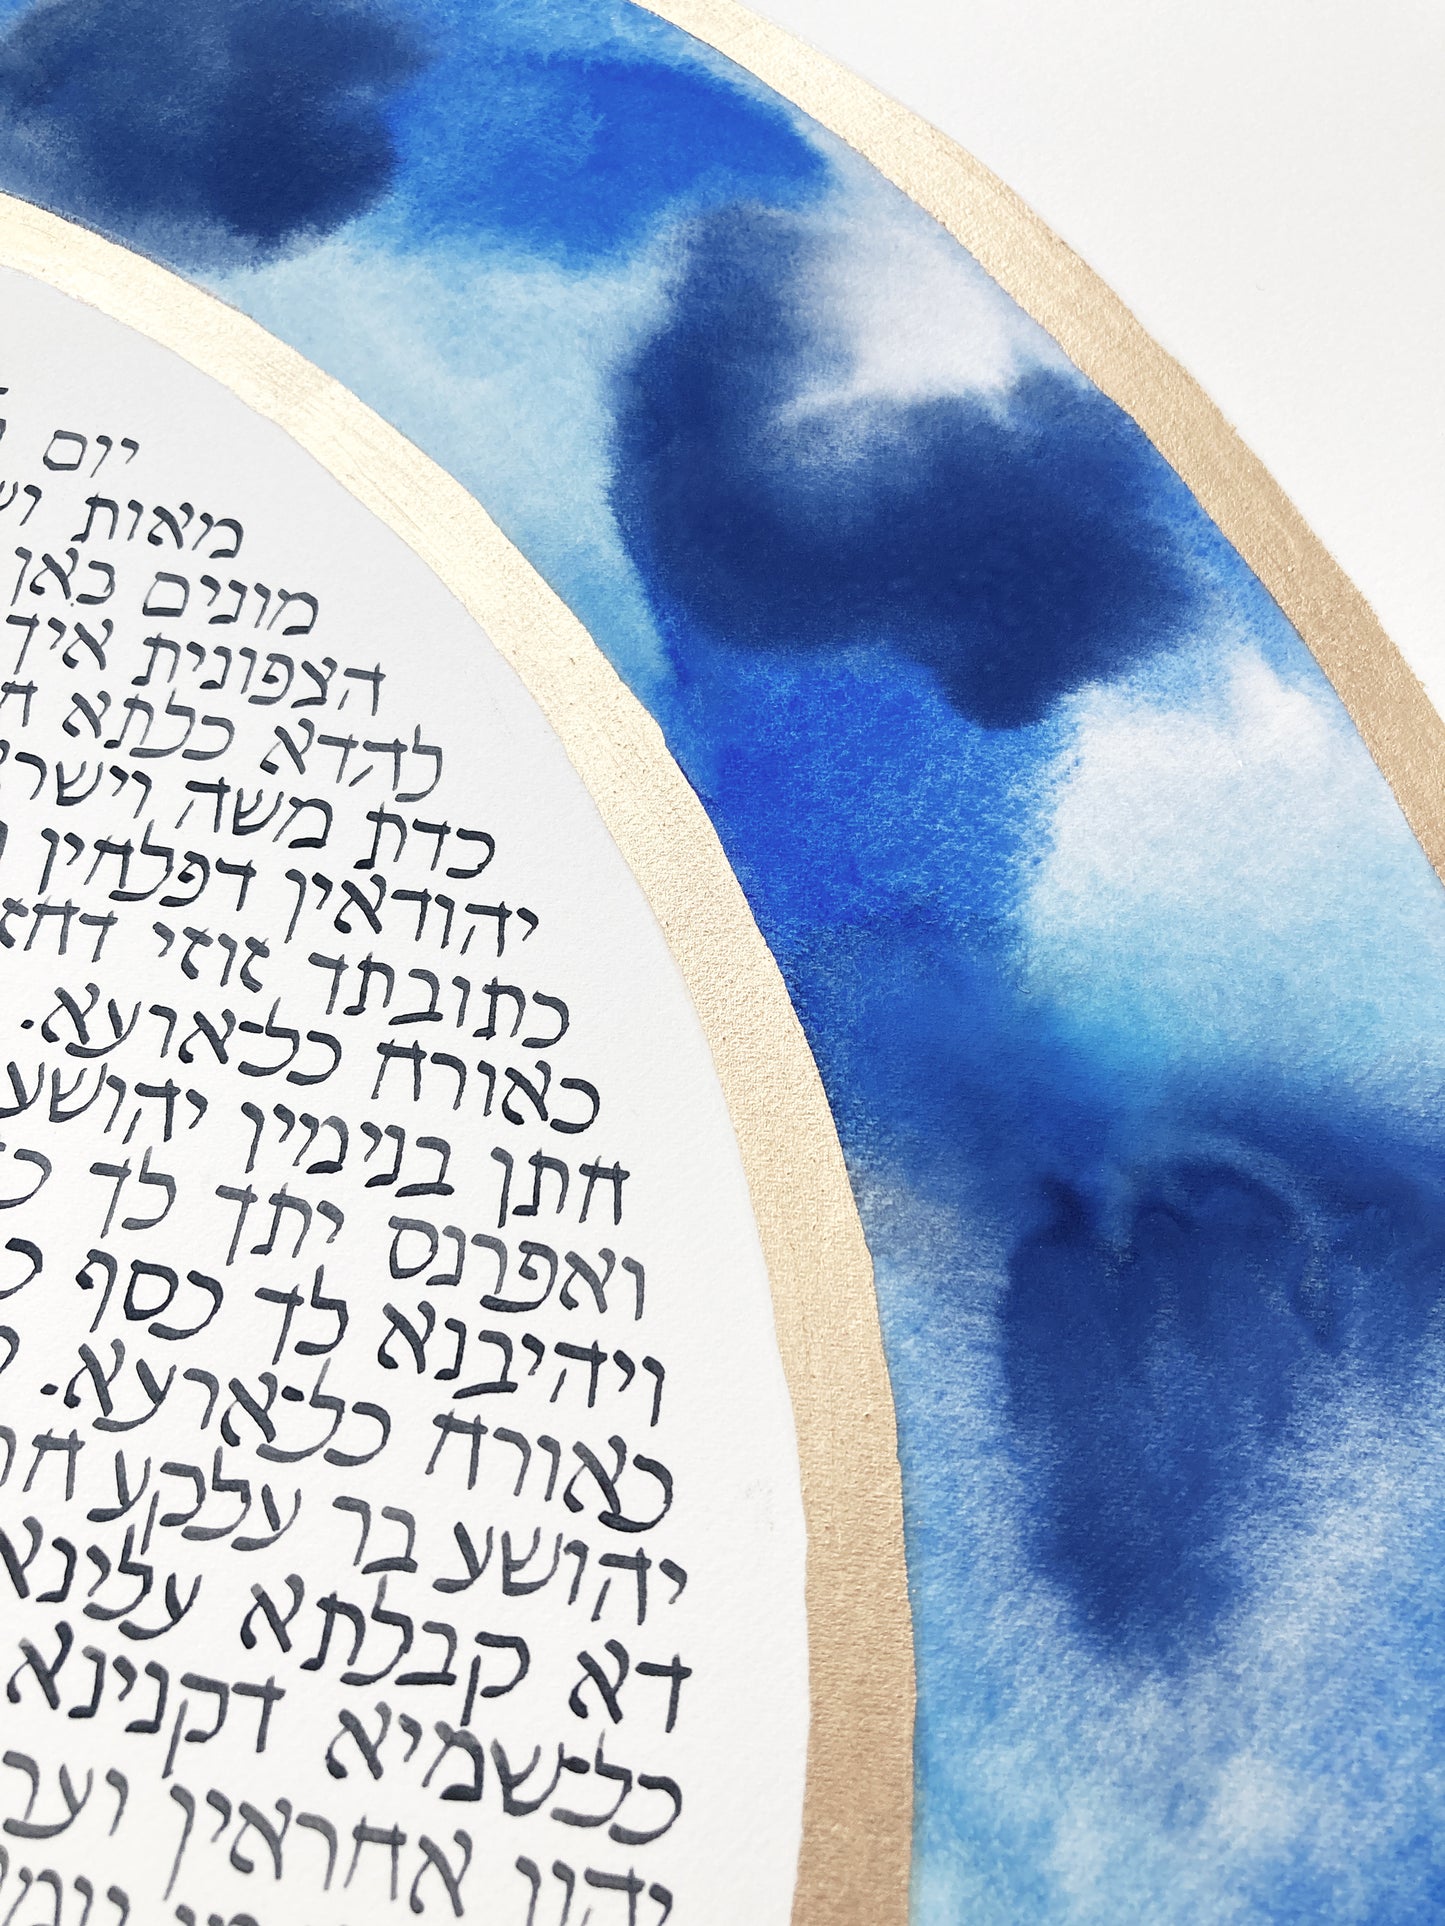 יום
מאות
מונים כאן
הצפונית איך
להדא כלתא
כדת משה וישר
יהודאין דפלחין
כתובתך זוזי דחז
כאורח כל־ארעא.
חתן בנימין יהושע
ואפרנס יתך לך
ויהיבנא לך כסף
כאורח כל־ארעא.
יהושע בר עלקע
דא קבלתא עלינא
כל־שמיא דקנינא
יהון אחראין וער